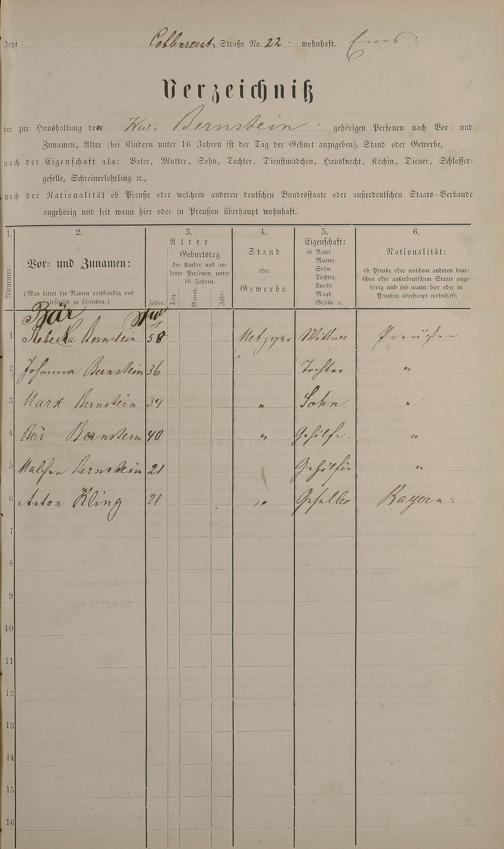 Jetzt Coblenzerst. Straße No. 22 wohnhaft. Ems.
Verzeichniß
der zur Haushaltung der Ww. Bernstein gehörigen Personen nach Vor- und
Zunamen, Alter (bei Kindern unter 16 Jahren ist der Tag der Geburt anzugeben), Stand oder Gewerbe,
nach der Eigenschaft als: Vater, Mutter, Sohn, Tochter, Dienstmädchen, Hausknecht, Köchin, Diener, Schlosser-
geselle, Schreinerlehrling ꝛc.,
nach der Nationalität ob Preuße oder welchem anderen deutschen Bundesstaate oder außerdeutschen Staats-Verbande
angehörig und seit wann hier oder in Preußen überhaupt wohnhaft.
1. 2. 3. 4. 5. 6.
Nummer.
Vor- und Zunamen:
(Man bittet die Namen vollständig und
leserlich zu schreiben.)
Alter
Geburtstag
der Kinder und an-
derer Personen unter
16 Jahren.
Jahre. Tag. Monat. Jahr.
Stand
oder
Gewerbe.
Eigenschaft:
ob Vater
Mutter
Sohn
Tochter
Knecht
Magd
Geselle ꝛc.
Nationalität:
ob Preuße oder welchem anderen deut-
schen oder außerdeutschen Staate ange-
hörig und seit wann hier oder in
Preußen überhaupt wohnhaft.
Bär
1 Rebecka Bernstein 58 Metzger Wittwe Preußen
2 Johanna Bernstein 36 Tochter "
3 Marx Bernstein 34 " Sohn "
4 Bär Bernstein 40 " Gehilfe "
5 Bernstein 21 Gehilfin "
6 Anton Kling 21 " Geselle Bayern.
7
8
9
10
11
12
13
14
15
16